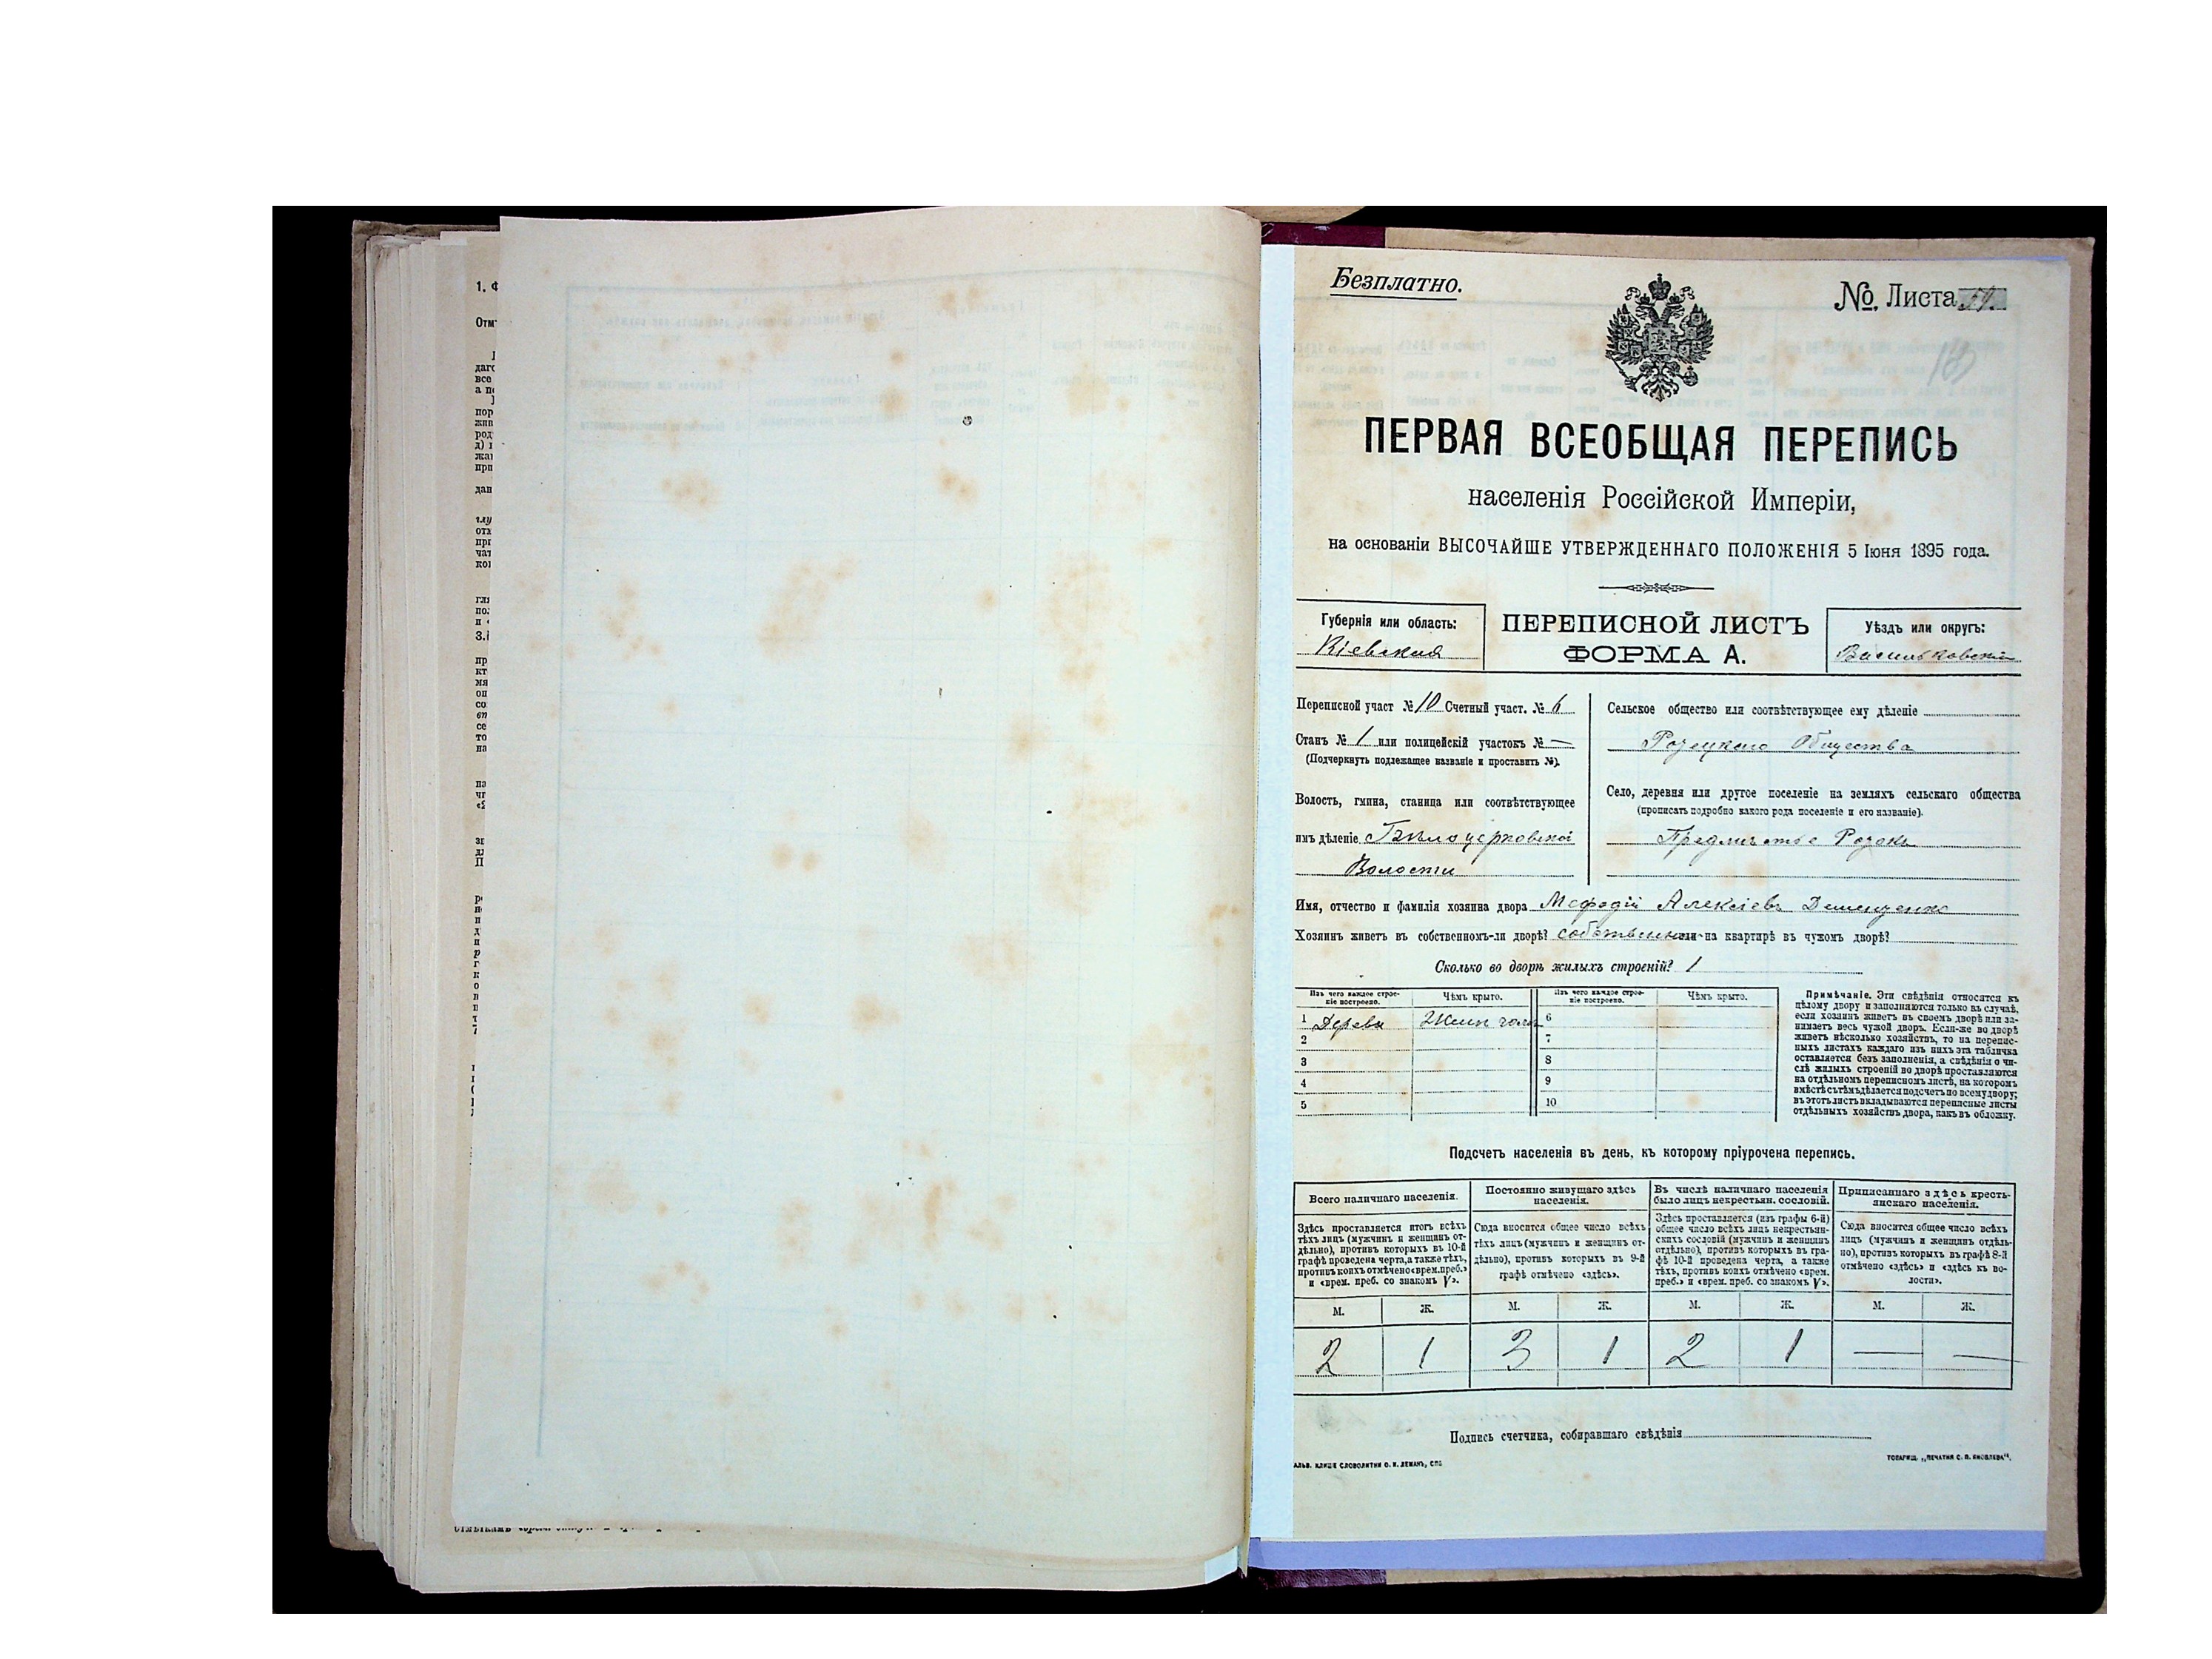 Безплатно.
№. Листа 54.
ПЕРВАЯ ВСЕОБЩАЯ ПЕРЕПИСЬ
населенія Россійской Имперіи,
на основаніи ВЫСОЧАЙШЕ УТВЕРЖДЕННАГО ПОЛОЖЕНІЯ 5 Іюня 1895 года.
Губернія или область:
Кіевская
ПЕРЕПИСНОЙ ЛИСТЪ
ФОРМА А.
Уѣздъ или округъ:
Васильковскій
Переписной участ №10 Счетный участ. № 6
Станъ № 1 или полицейскій участокъ № —
(Подчеркнуть подлежащее названіе и проставить №).
Волость, гмина, станица или соотвѣтствующее
имъ дѣленіе Бѣлоцерковской
Волости
Сельское общество или соотвѣтствующее ему дѣленіе
Общества
Село, деревня или другое поселеніе на земляхъ сельскаго общества
(прописать подробно какого рода поселеніе и его названіе).
Предмѣстье
Имя, отчество и фамилія хозяина двора Мефодій Алексіевъ
Хозяинъ живетъ въ собственномъ-ли дворѣ? или на квартирѣ въ чужомъ дворѣ?
Сколько во дворѣ жилыхъ строеній? 1
Изъ чего каждое строе-
ніе построено.
Чѣмъ крыто.
Изъ чего каждое строе-
ніе построено.
Чѣмъ крыто.
1 6
2 7
3 8
4 9
5 10
Примѣчаніе. Эти свѣдѣнія относятся къ
цѣлому двору и заполняются только въ случаѣ,
если хозяинъ живетъ въ своемъ дворѣ или за-
нимаетъ весь чужой дворъ. Если-же во дворѣ
живетъ нѣсколько хозяйствъ, то на перепис-
ныхъ листахъ каждаго изъ нихъ эта табличка
оставляется безъ заполненія, а свѣдѣнія о чи-
слѣ жилыхъ строеній во дворѣ проставляются
на отдѣльномъ переписномъ листѣ, на которомъ
вмѣстѣ съ тѣмъ дѣлается подсчетъ по всему двору;
въ этотъ листъ вкладываются переписные листы
отдѣльныхъ хозяйствъ двора, какъ въ обложку.
Подсчетъ населенія въ день, къ которому пріурочена перепись.
Всего наличнаго населенія.
Здѣсь проставляется итогъ всѣхъ
тѣхъ лицъ (мужчинъ и женщинъ от-
дѣльно), противъ которыхъ въ 10-й
графѣ проведена черта, а также тѣхъ,
противъ коихъ отмѣчено «врем. преб.»
и «врем. преб. со знакомъ V».
Постоянно живущаго здѣсь
населенія.
Сюда вносится общее число всѣхъ
тѣхъ лицъ (мужчинъ и женщинъ от-
дѣльно), противъ которыхъ въ 9-й
графѣ отмѣчено «здѣсь».
Въ числѣ наличнаго населенія
было лицъ некрестьян. сословій.
Здѣсь проставляется (изъ графы 6-й)
общее число всѣхъ лицъ некрестьян-
скихъ сословій (мужчинъ и женщинъ
отдѣльно), противъ которыхъ въ гра-
фѣ 10-й проведена черта, а также
тѣхъ, противъ коихъ отмѣчено «врем.
преб.» и «врем. преб. со знакомъ V».
Приписаннаго здѣсь кресть-
янскаго населенія.
Сюда вносится общее число всѣхъ
лицъ (мужчинъ и женщинъ отдѣль-
но), противъ которыхъ въ графѣ 8-й
отмѣчено «здѣсь» и «здѣсь къ во-
лости».
М. Ж. М. Ж. М. Ж. М. Ж.
2 1 3 1 2 1 — —
Подпись счетчика, собиравшаго свѣдѣнія
КЛИШЕ СЛОВОЛИТНИ О. И. ЛЕМАНЪ, СПБ
ТОВАРИЩ. „ПЕЧАТНЯ С. П. ЯКОВЛЕВА“.